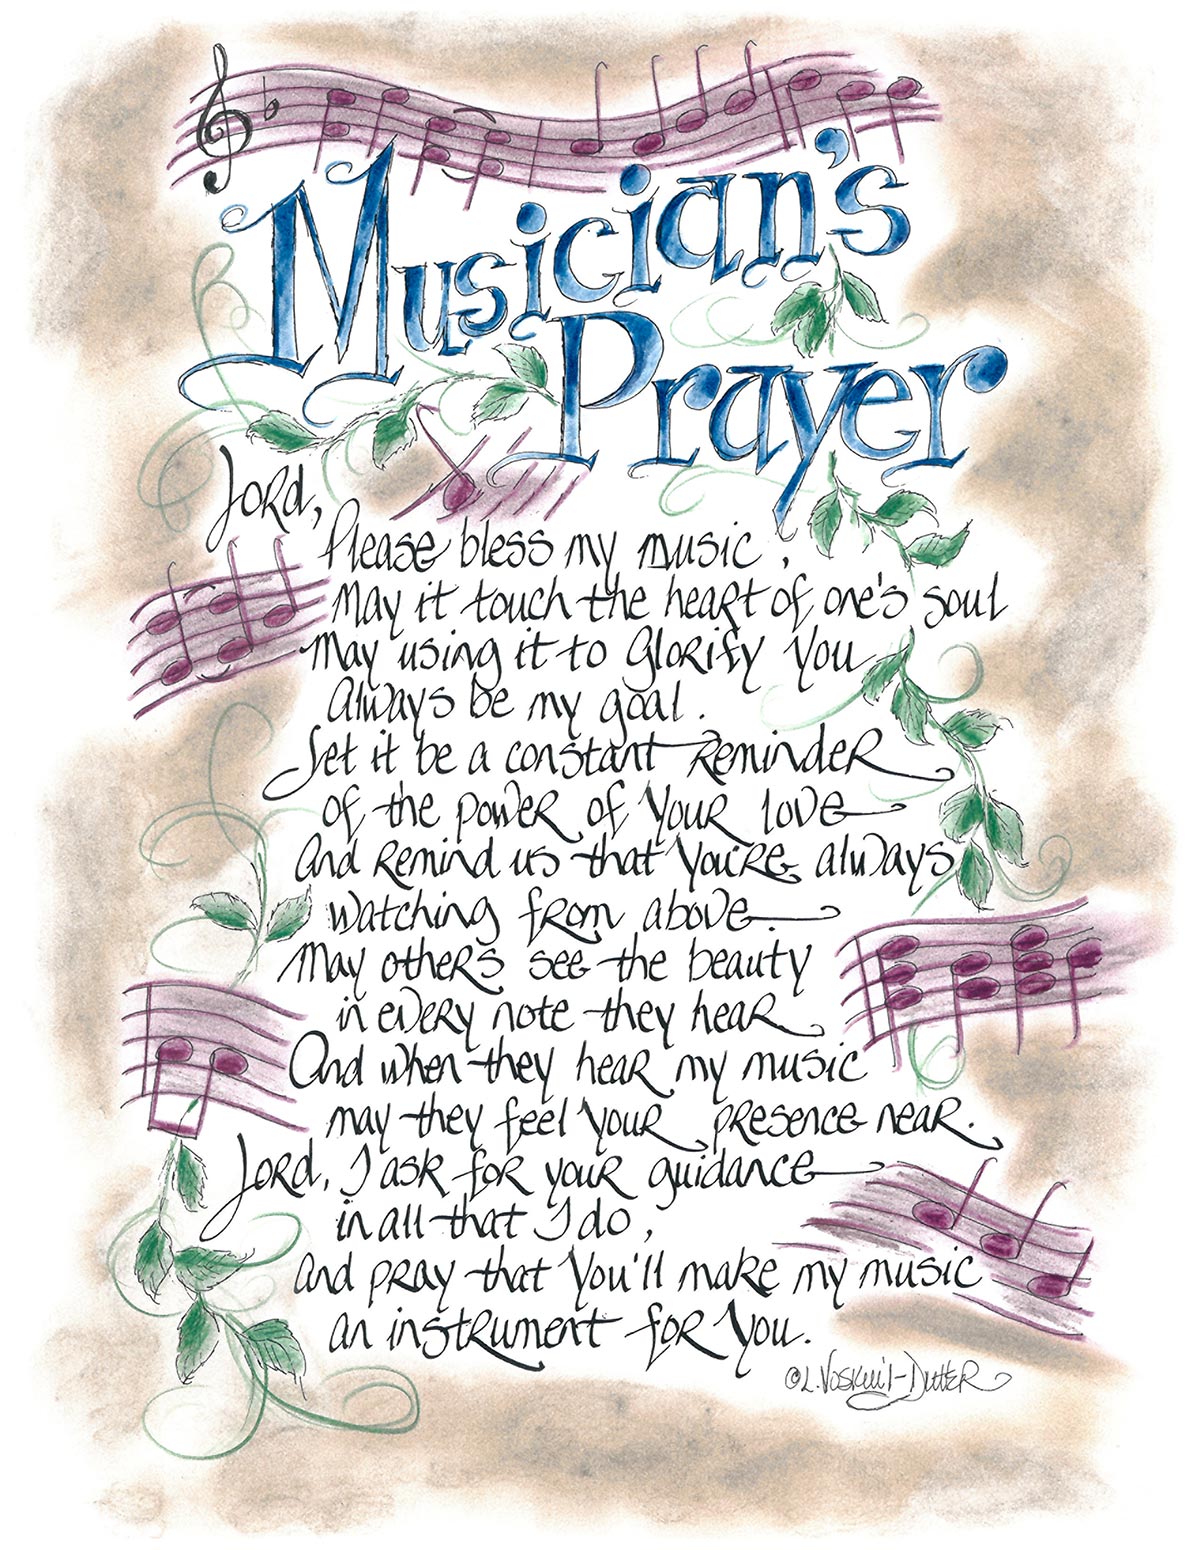 Musician's
Prayer
Lord,
Please bless my music,
May it touch the heart of one's soul
May using it to Glorify You
Always be my goal.
Let it be a constant Reminder
of the power of Your love
And remind us that You're always
watching from above.
May others see the beauty
in every note they hear
And when they hear my music
may they feel Your presence near.
Lord, I ask for your guidance
in all that I do,
And pray that You'll make my music
an instrument for You.
©L. Voskuil-Dutter